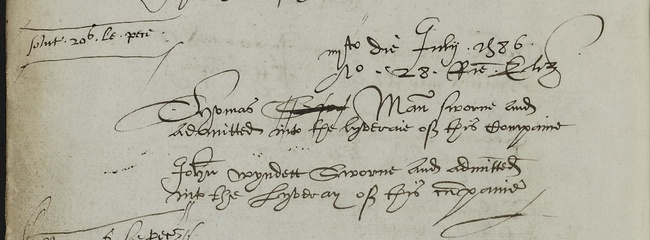 solut. 20s. le. pece
iiijto die July .1586.
Ao. 28. Rne Eliz
Thomas Man sworne and
admitted into the lyveraie of this Companie
John Wyndett Sworne and admitted
into the Lyveray of this Companie
s. le pece